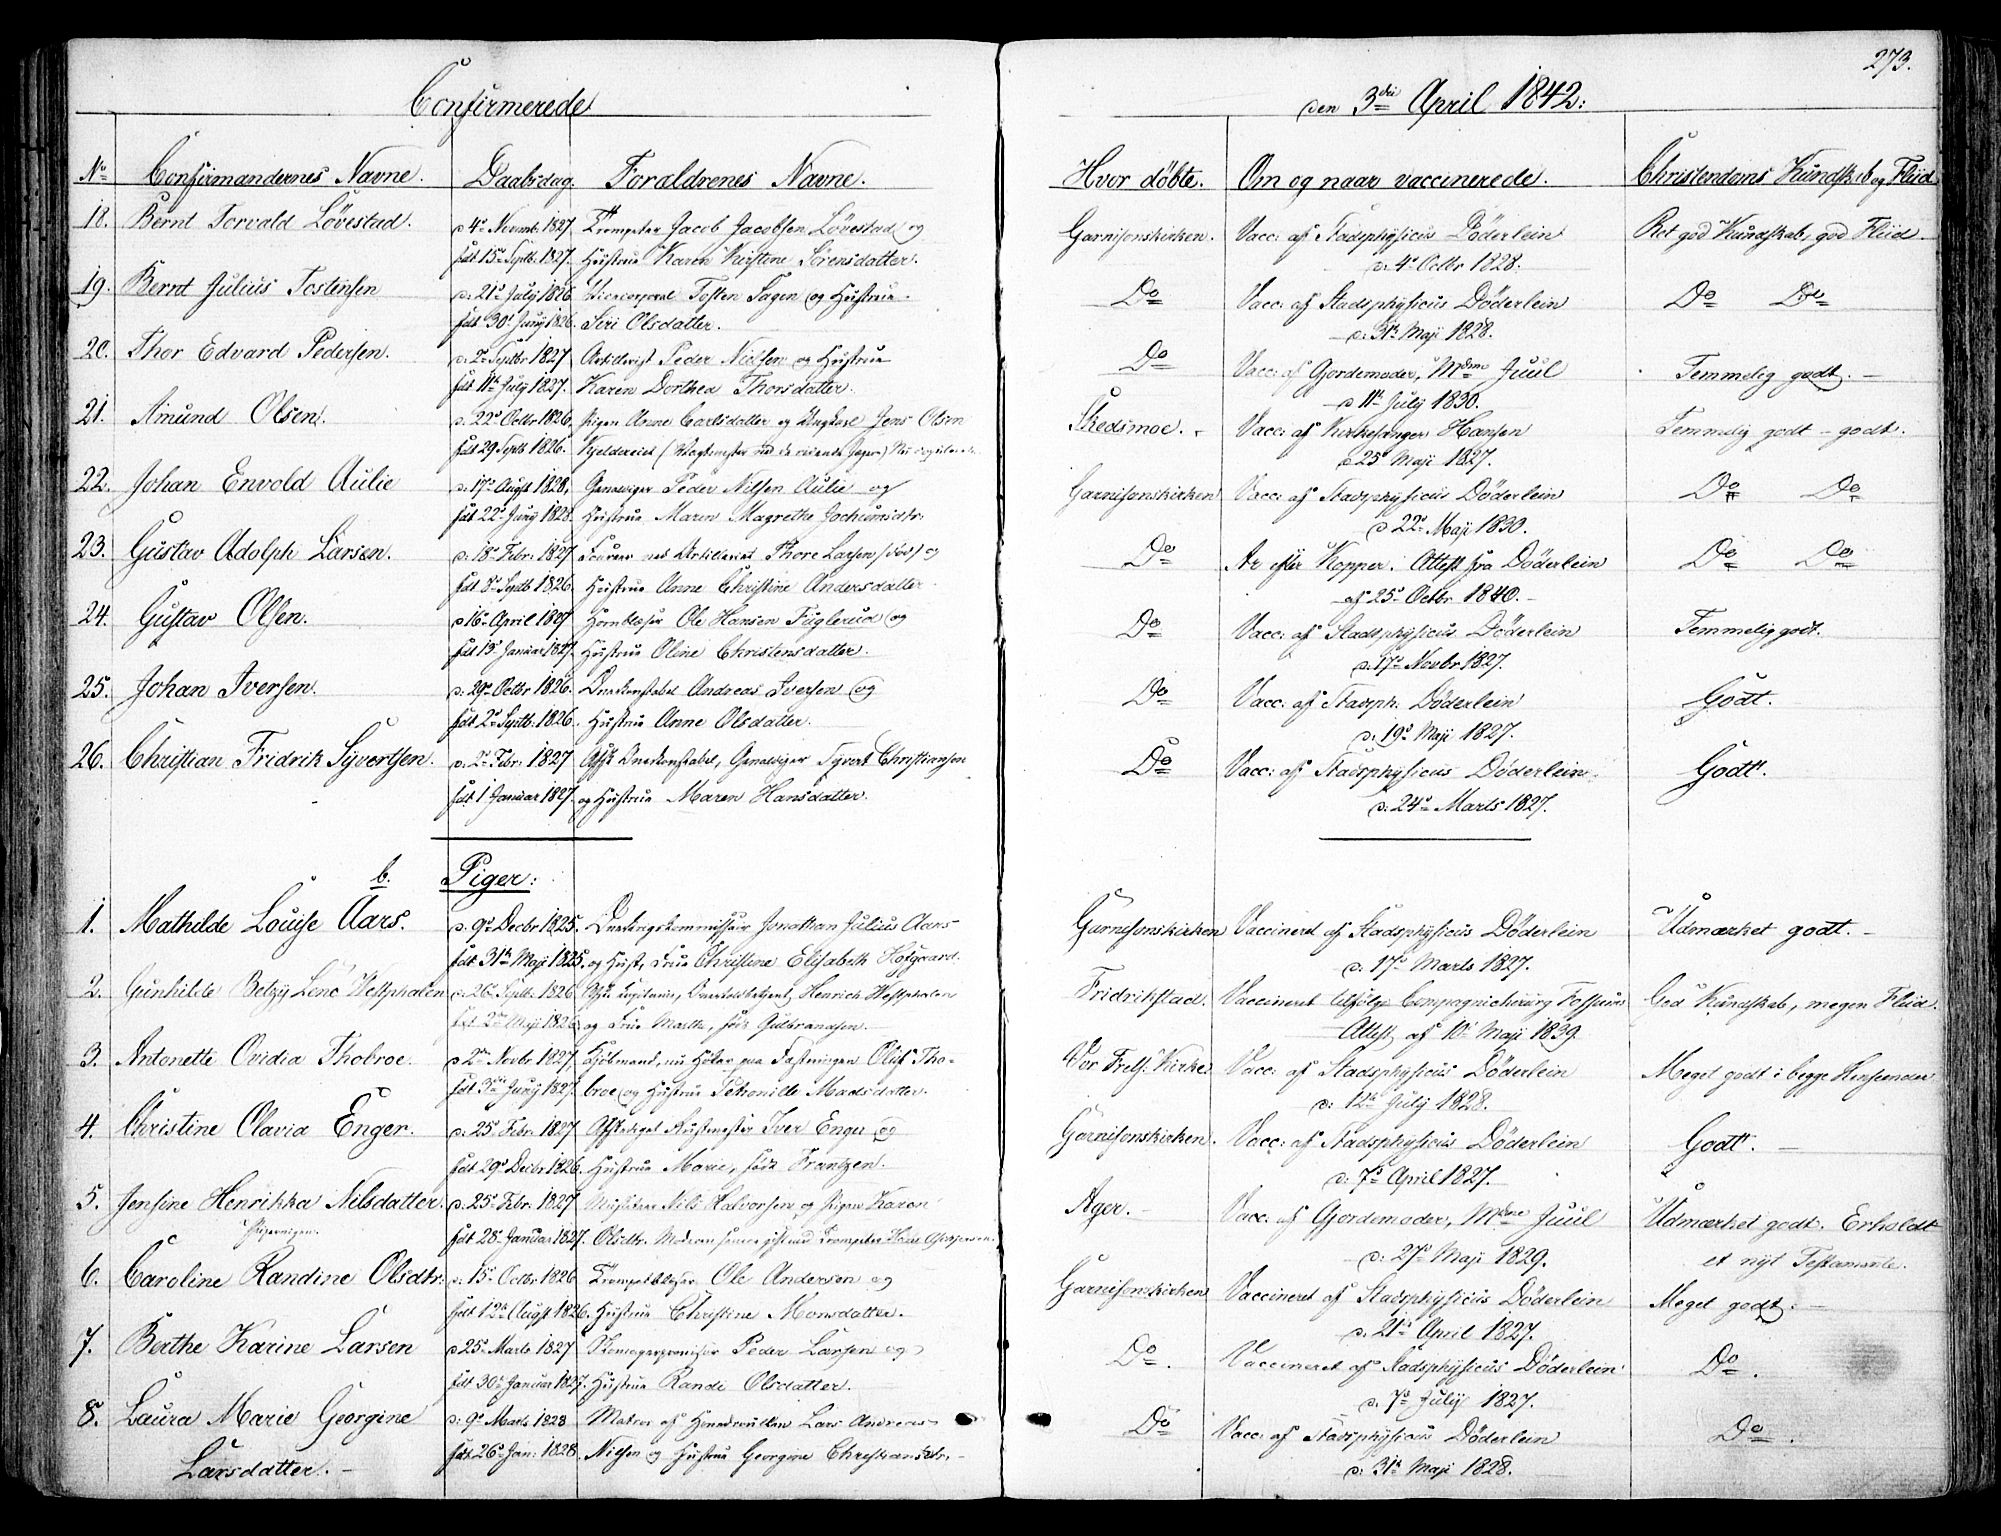 273.
Confirmerede
den 3die April 1842:
No
Confirmandernes Navne.
Daabsdag.
Forældrenes Navne.
Hvor døbte.
Om og naar vaccinerede.
Christendoms Kundskab og Fliid
18. Bernt Torvald Løvestad. d 4de Novemb. 1827. Trompeter Jacob Jacobsen Løvestad og Garnisonskirken. Vacc: af Stadsphysicus Döderlein Ret god Kundskab, god Fliid.
født 15de Septb. 1827. Hustrue Karen Kirstine Sørensdatter. d: 4de Octbr 1828.
19. Bernt Julius Tostensen d: 21de July 1826. Vicecorporal Tosten Sagen og Hustrue Do Vacc: af Stadsphysicus Döderlein Do Do
født 30te Juny 1826. Siri Olsdatter. d: 31te Maji 1828.
20. Thor Edvard Pedersen. d: 2den Septbr 1827 Artillerist Peder Nielsen og Hustrue Do Vacc: af Gjordemoder, Mdme Juul Temmelig godt.
født 11te July 1827. Karen Dorthea Thorsdatter. d 11te July 1830.
21. Amund Olsen. d: 22de Octbr 1826. Pigen Anne Carlsdatter og Ungkarl Jens Olsen Skedsmoe. Vacc: af Kirkesanger Hansen Temmelig godt - godt.
født 29 Septb 1826. Kjeldereiet d 25de Maji 1827.
22. Johan Envold Aulie d: 17de Augst 1828. Gevaldiger Peder Nilsen Aulie og Garnisonskirken Vacc: af Stadsphysicus Döderlein Do Do
født 22de Juny 1828. Hustrue Maren Magrethe Jochumsdtr: d 22de Maji 1830.
23. Gustav Adolph Larsen. d: 18de Febr: 1827 ved Artilleriet Thore Larsen (død) og Do Ar efter Kopper. Attest fra Döderlein Do Do
født 8de Septb 1826. Hustrue Anne Christine Andersdatter af 25de Octbr 1840.
24. Gustav Olsen. d 16de April 1827 Hornblæser Ole Hansen Fuglerud og Do Vacc: af Stadsphysicus Döderlein Temmelig godt.
født 13de Januar 1827. Hustrue Oline Christensdatter. d: 17de Novbr 1827.
25. Johan Iversen. d: 29de Octbr 1826. Underkonstabel Andreas Iversen og Do Vacc: af Stadsph. Döderlein Godt.
født 2den Septb: 1826. Hustrue Anne Olsdatter. d: 19de Maji 1827.
26. Christian Fridrik Syvertsen. d: 2den Febr: 1827 Afsk Underkonstabel, Gevaldiger Syvert Christiansen Do Vacc: af Stadsphysicus Döderlein. Godt.
født 1 Januar 1827. og Hustrue Maren Hansdatter. d: 24de Marts 1827.
b. Piger:
1. Mathilde Louise Aars. d. 9de Decbr 1825. Jonathan Julius Aars Garnisonskirken Vaccineret af Stadsphysicus Döderlein Udmærket godt.
født 31te Maji 1825. og Hust, Frue Christine Elisabeth Hofgaard. d: 17de Marts 1827.
2. Gunhilde Betzy Lene Westphalen d: 26de Septb: 1826 Henrich Westphalen Fridrikstad. Vaccineret tilfølge Compagniechirurg Fossums God Kundskab, megen Fliid.
født 2den Maji 1826 og Frue Marthe, født Gulbrandsen. Attest af 10de Maji 1839.
3. Antonette Ovidia Thobroe. d 2den Novbr 1827. Kjøbmand, nu Høker paa Fæstningen Oluf Tho- Vor Frels: Kirke Vacc: af Stadsphysicus Döderlein Meget godt i begge Henseender
født 3die Juny 1827. broe og Hustrue Petronille Madsdatter. d: 12te July 1828.
4. Christine Olavia Enger. d: 25de Febr: 1827 Afskediget Rustmester Iver Enger og Garnisonskirken. Vacc: af Stadsphysicus Döderlein Godt.
født 29de Decbr 1826. Hustrue Marie, født Frantzen. d: 7de April 1827.
5. Jensine Henrikka Nilsdatter. d: 25de Febr: 1827 Musketeer Nils Halvorsen og Pigen Karen Ager. Vacc. af Gjordemoder, Mdme Juul Udmærket godt. Erholdt
født 28de Januar 1827. Olsdtr. Moderen senere gift med Trompeter Hans d: 27de Maji 1829. et nyt Testamente.
6. Caroline Randine Olsdtr: d: 15de Octbr 1826 Trompetblæser Ole Andersen og Garnisonskirken Vaccineret af Stadsphysicus Döderlein Meget godt.
født 12te Augst 1826. Hustrue Christine Monsdatter. d. 21de April 1827.
7. Berthe Karine Larsen d 25de Marts 1827 Skomagerprovisor Peder Larsen og Do. Vaccineret af Stadsphysicus Döderlein Do.
født 30te Januar 1827. Hustrue Randi Olsdatter. d. 7de July 1827.
8. Laura Marie Georgine d: 9de Marts 1828 Matros af Lars Andreas Do Vacc: af Stadsphysicus Döderlein Do.
Larsdatter. født 26de Jan: 1828. Nielsen og Hustrue Georgine Christiansdtr. d: 31te Maji 1828.